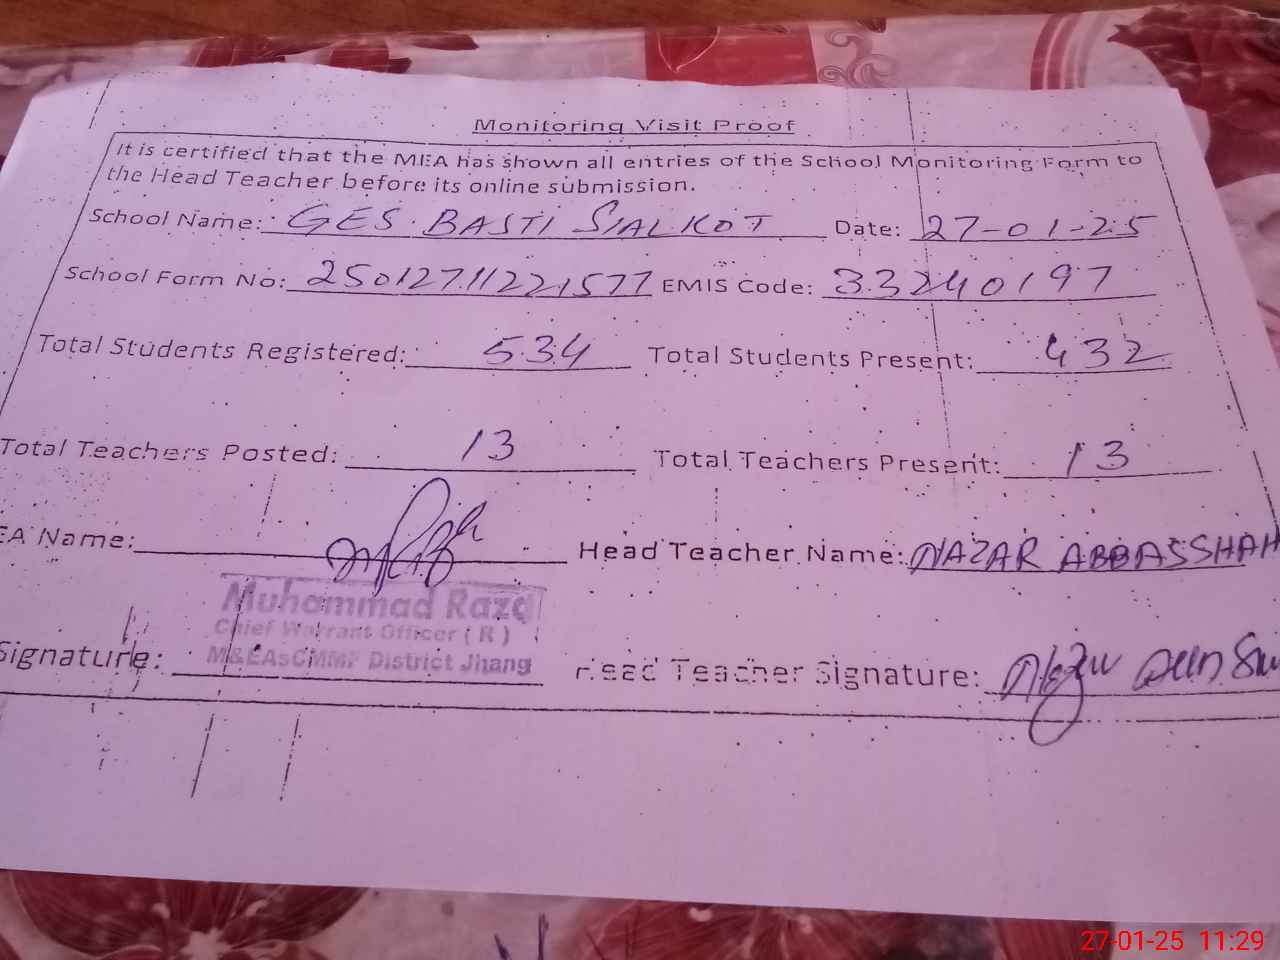 Monitoring Visit Proof
It is certified that the MEA has shown all entries of the School Monitoring Form to
the Head Teacher before its online submission.
School Name: GES BASTI SIALKOT Date: 27-01-25
School Form No: 25012711221577 EMIS Code: 33240197
Total Students Registered: 534 Total Students Present: 432
Total Teachers Posted: 13 Total Teachers Present: 13
EA Name: Head Teacher Name: NAZAR ABBASSHAH
Muhammad Raza
Chief Warrant Officer ( R )
M&EAsCMMF District Jhang
Signature: Head Teacher Signature:
27-01-25 11:29